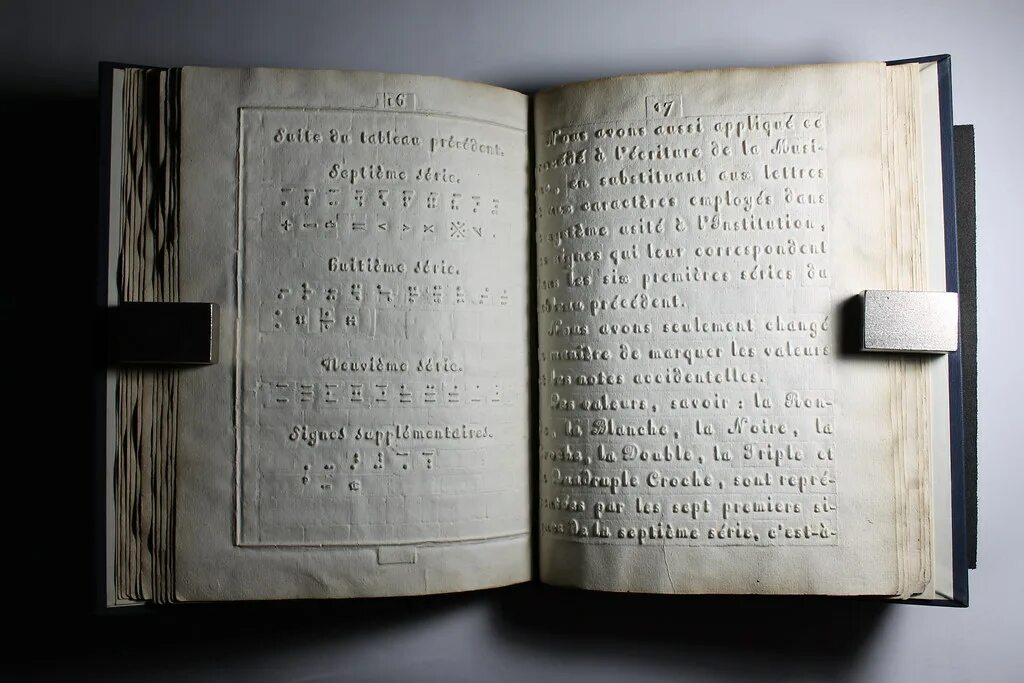 16
Suite du tableau précédent.
Septième série.
+ = < > × ※
Huitième série.
Neuvième série.
Signes supplémentaires.
17
Nous avons aussi appliqué ce
à l'écriture de la Musi-
en substituant aux lettres
aux caractères employés dans
système usité à l'Institution,
signes qui leur correspondent
les six premières séries du
précédent.
Nous avons seulement changé
manière de marquer les valeurs
les notes accidentelles.
Les valeurs, savoir : la Ron-
la Blanche, la Noire, la
la Double, la Triple et
Quadruple Croche, sont repré-
par les sept premiers si-
De la septième série, c'est-à-